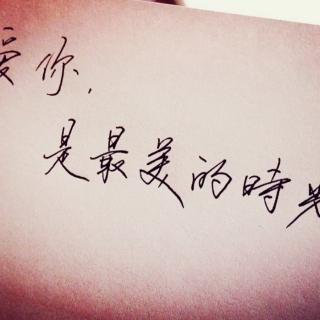 愛你,
是最美的時光